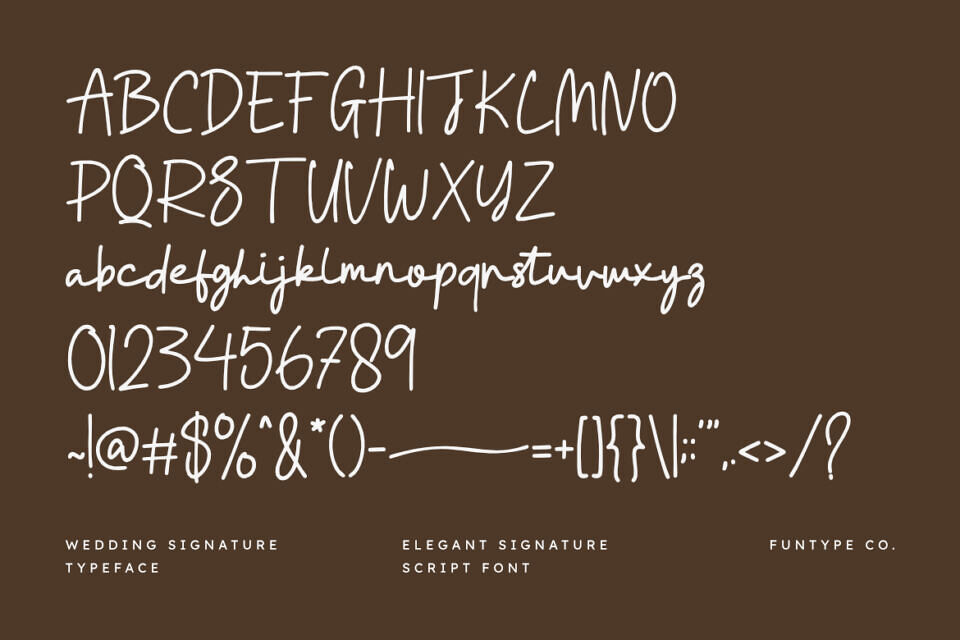 ABCDEFGHIJKLMNO
PQRSTUVWXYZ
abcdefghijklmnopqrstuvwxyz
0123456789
~!@#$%^&*()-_=+[]{}\|;:'",.<>/?
WEDDING SIGNATURE
TYPEFACE
ELEGANT SIGNATURE
SCRIPT FONT
FUNTYPE CO.